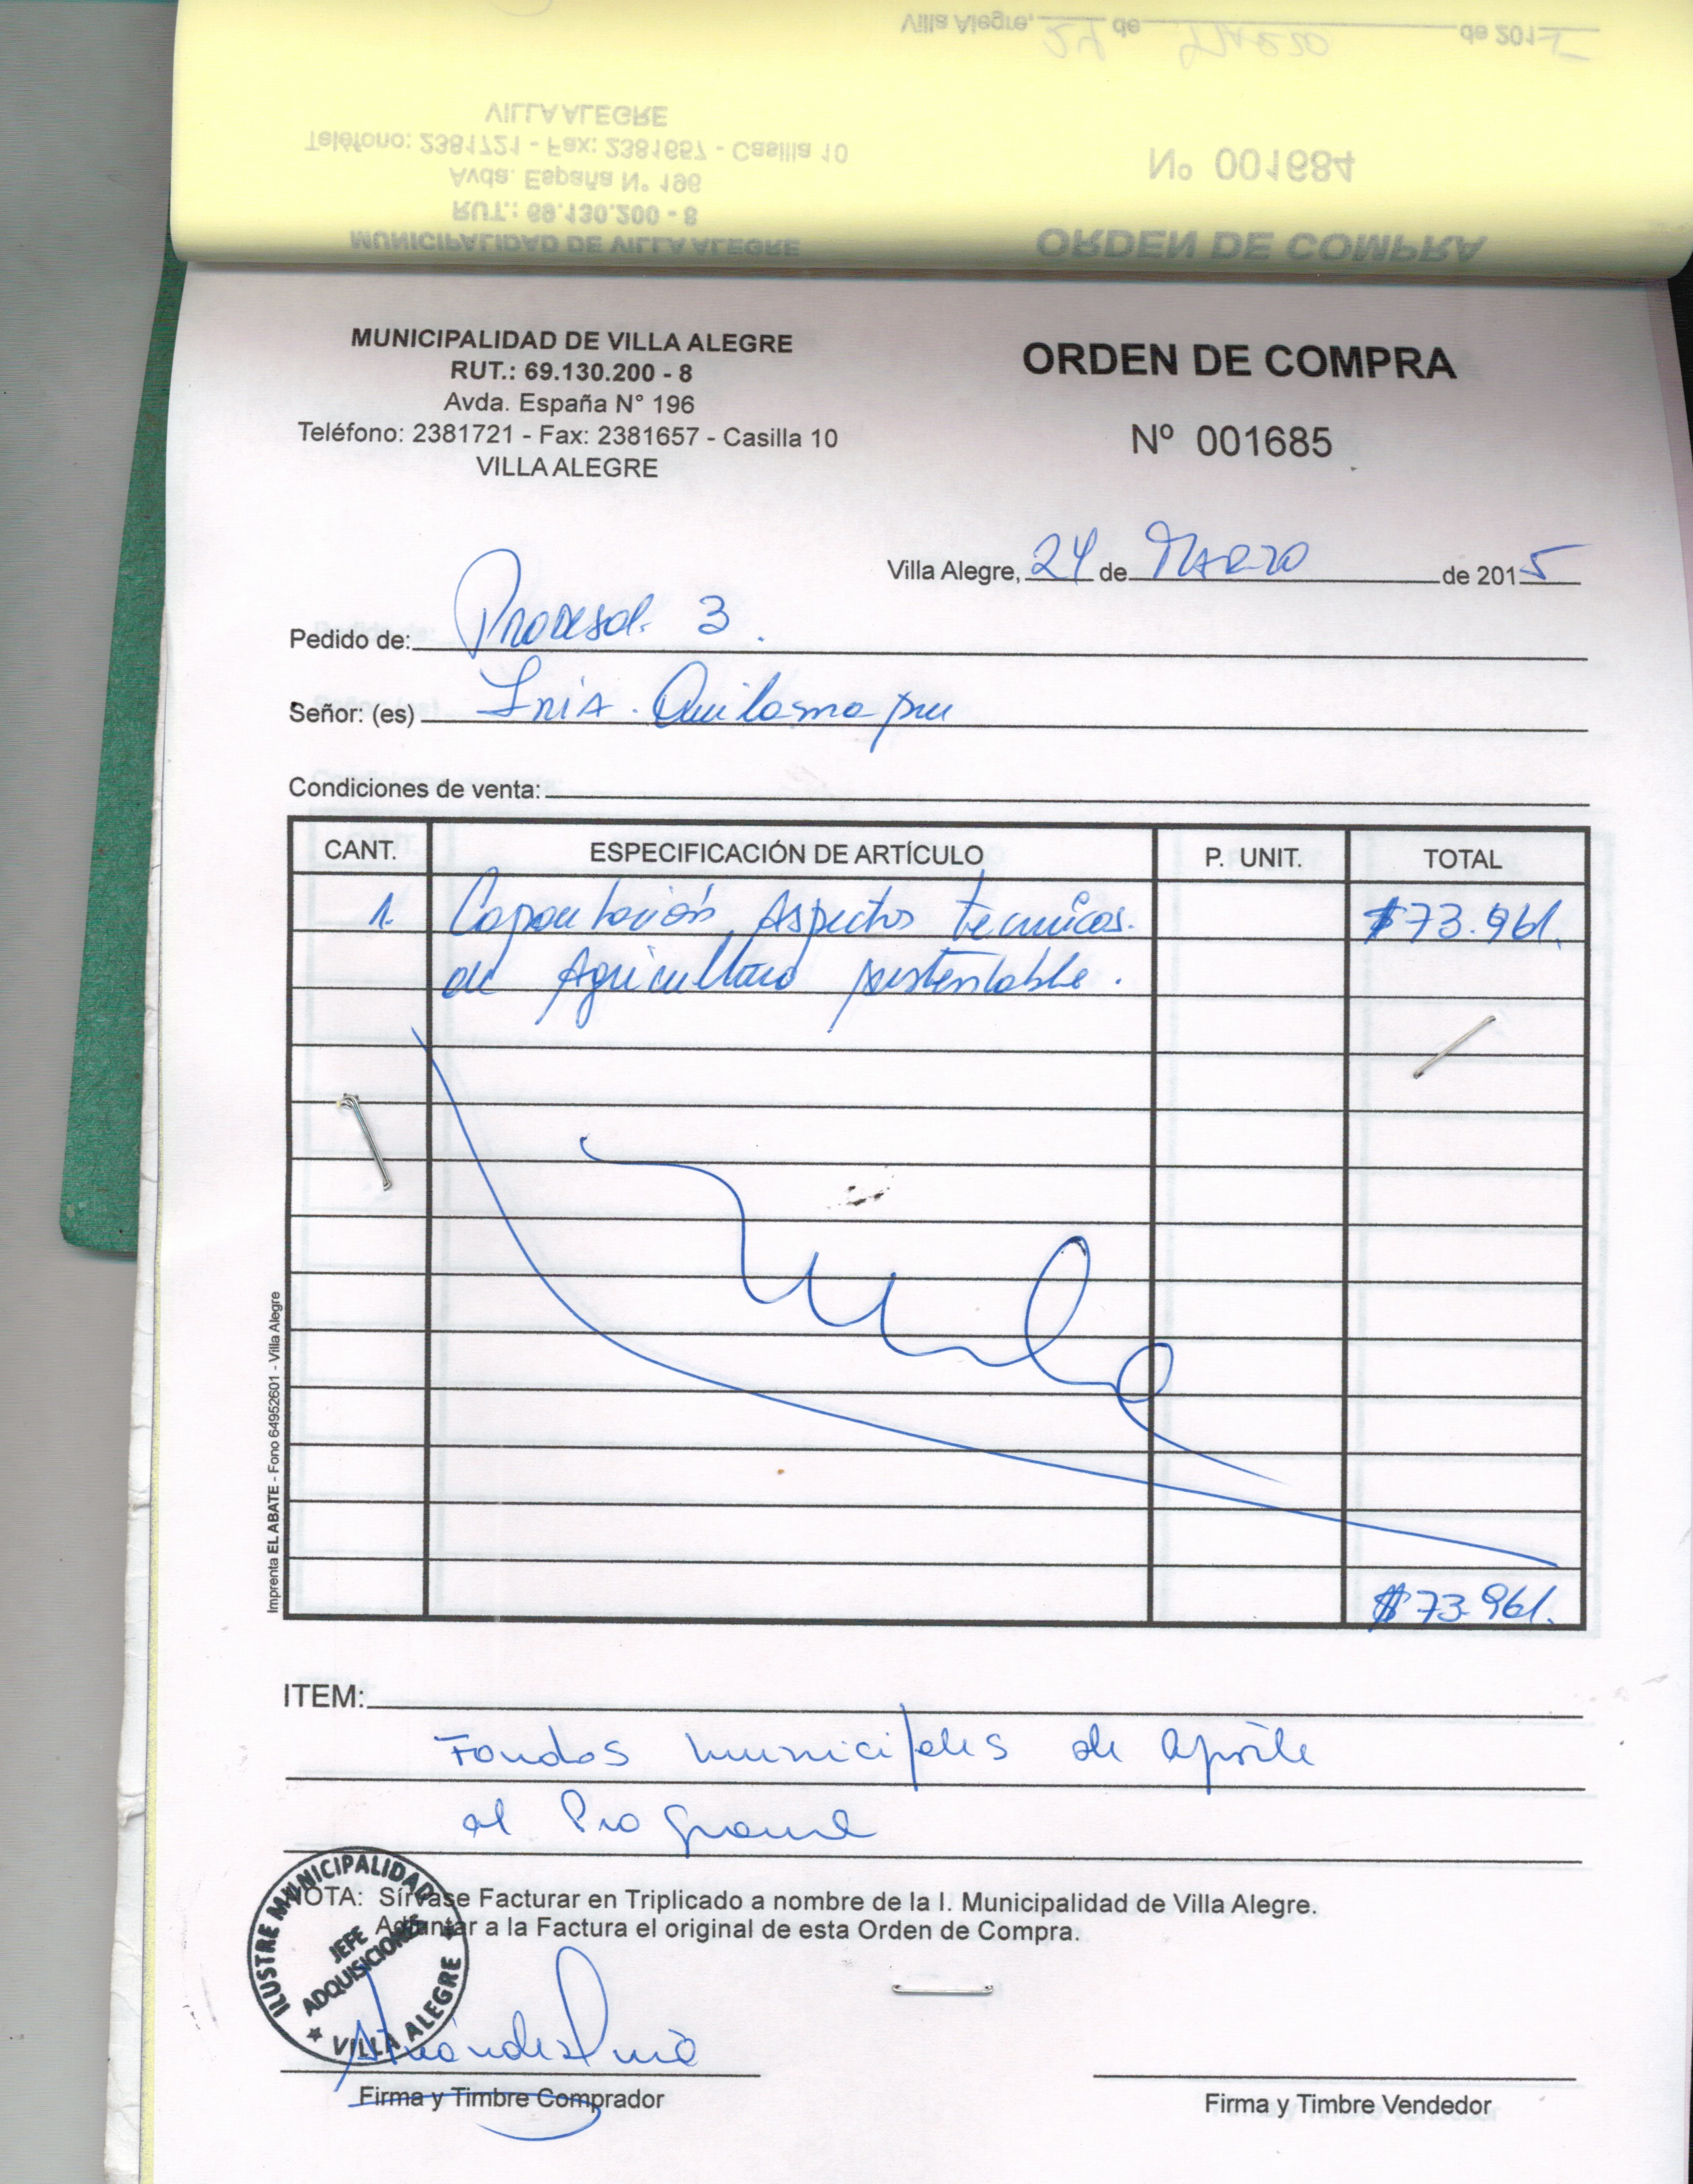 Villa Alegre, 24 de MARZO de 2015
VILLA ALEGRE
Teléfono: 2381721 - Fax: 2381657 - Casilla 10
Nº 001684
Avda. España N° 196
RUT.: 69.130.200 - 8
MUNICIPALIDAD DE VILLA ALEGRE
ORDEN DE COMPRA
MUNICIPALIDAD DE VILLA ALEGRE
RUT.: 69.130.200 - 8
Avda. España N° 196
Teléfono: 2381721 - Fax: 2381657 - Casilla 10
VILLA ALEGRE
ORDEN DE COMPRA
Nº 001685
Villa Alegre, 24 de MARZO de 2015
Pedido de: Prodesal 3.
Señor: (es) INIA. Quilamapu
Condiciones de venta:
CANT. ESPECIFICACIÓN DE ARTÍCULO P. UNIT. TOTAL
1. Capacitación Aspectos tecnicos. $73.961.
de Agricultura sustentable.
$73.961.
Imprenta EL ABATE - Fono 64952601 - Villa Alegre
ITEM:
Fondos Municipales de aporte
al Programa
NOTA: Sírvase Facturar en Triplicado a nombre de la I. Municipalidad de Villa Alegre.
Adjuntar a la Factura el original de esta Orden de Compra.
ILUSTRE MUNICIPALIDAD
JEFE
ADQUISICIONES
VILLA ALEGRE
Firma y Timbre Comprador
Firma y Timbre Vendedor